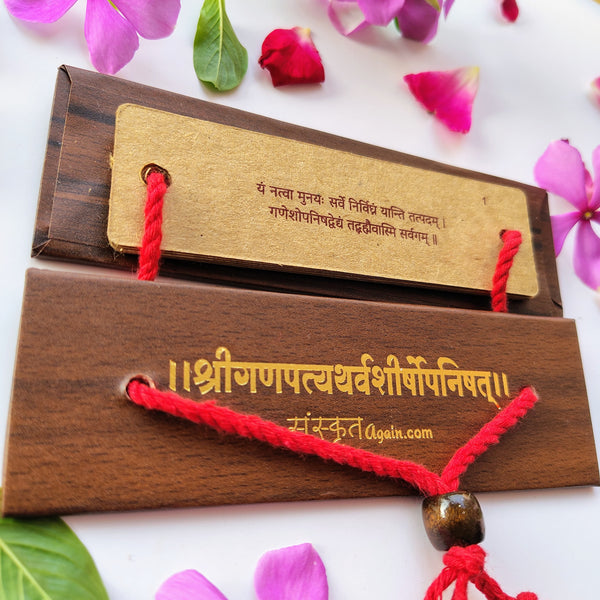 यं नत्वा मुनयः सर्वे निर्विघ्नं यान्ति तत्पदम् ।
गणेशोपनिषद्वेद्यं तद्ब्रह्मैवास्मि सर्वगम् ॥
१
।।श्रीगणपत्यथर्वशीर्षोपनिषत्।।
संस्कृत Again.com